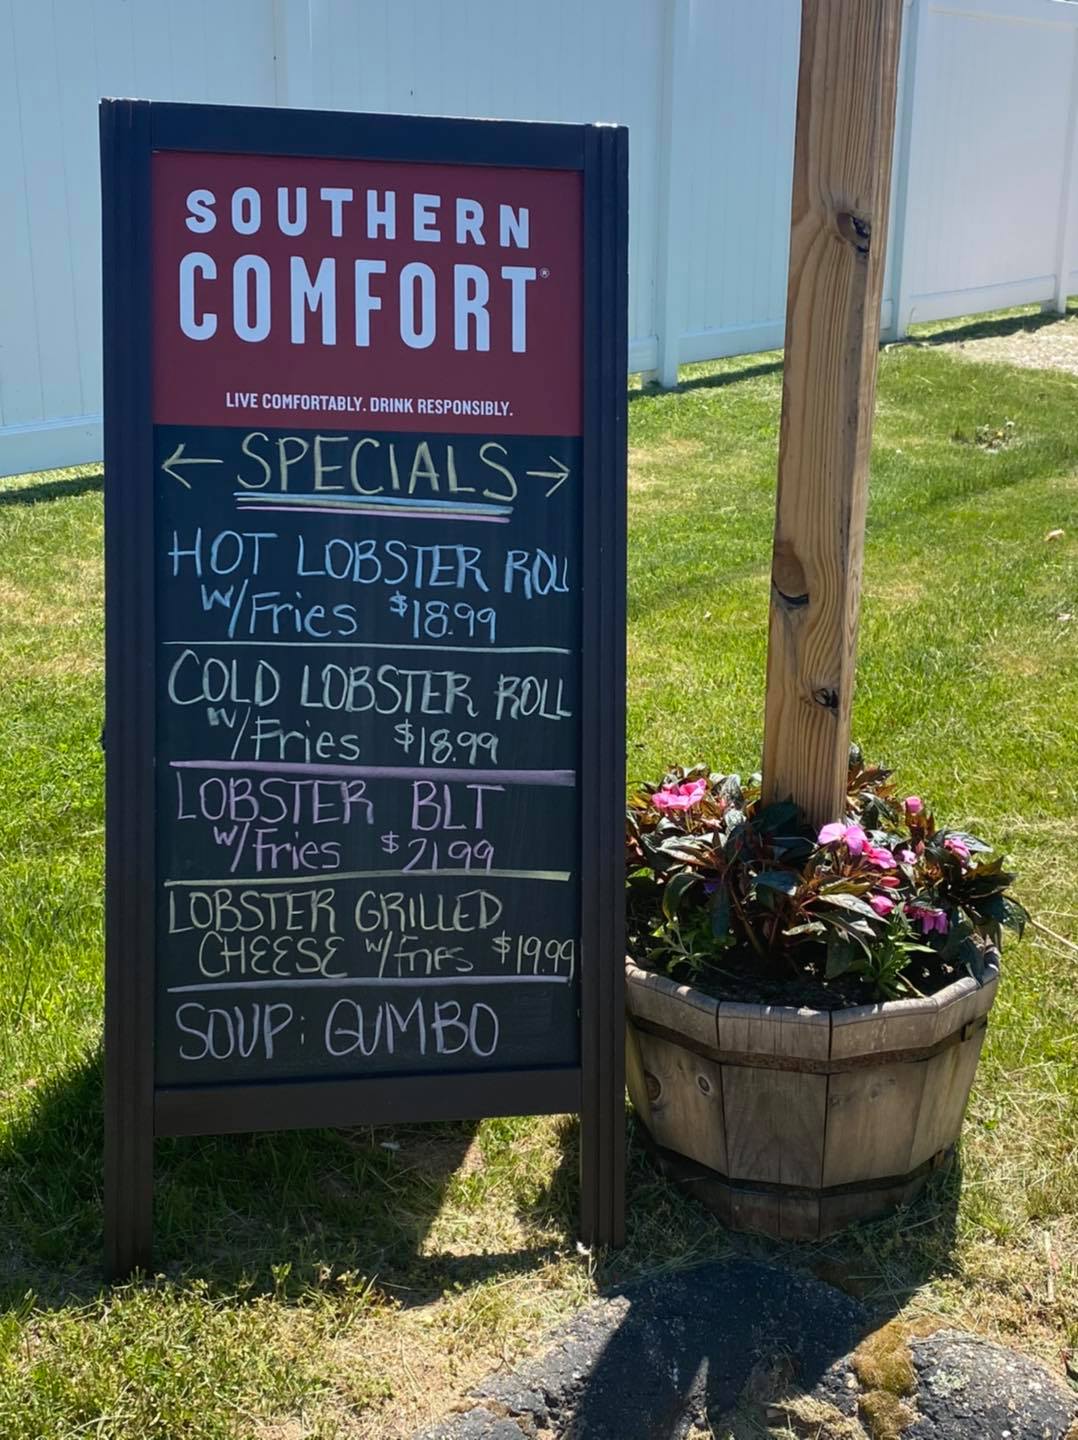 SOUTHERN
COMFORT®
LIVE COMFORTABLY. DRINK RESPONSIBLY.
← SPECIALS →
HOT LOBSTER ROLL
w/Fries $18.99
COLD LOBSTER ROLL
w/Fries $18.99
LOBSTER BLT
w/Fries $21.99
LOBSTER GRILLED
CHEESE w/Fries $19.99
SOUP: GUMBO